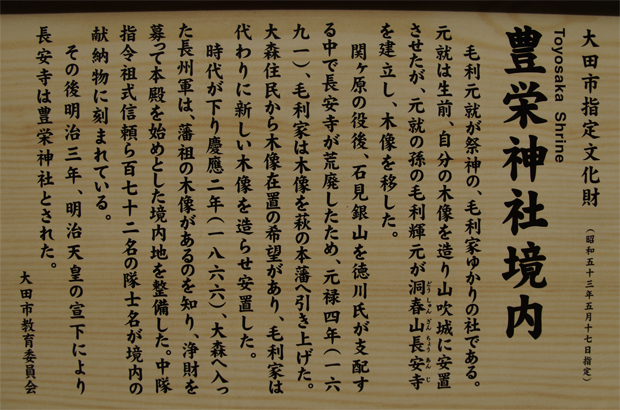 大田市指定文化財
（昭和五十三年五月十七日指定）
豊栄神社境内
Toyosaka Shrine
毛利元就が祭神の、毛利家ゆかりの社である。
元就は生前、自分の木像を造り山吹城に安置
させたが、元就の孫の毛利輝元が洞春山長安寺
どうしゅんざんちょうあんじ
を建立し、木像を移した。
関ヶ原の役後、石見銀山を徳川氏が支配す
る中で長安寺が荒廃したため、元禄四年（一六
九一）、毛利家は木像を萩の本藩へ引き上げた。
大森住民から木像在置の希望があり、毛利家は
代わりに新しい木像を造らせ安置した。
時代が下り慶應二年（一八六六）、大森へ入っ
た長州軍は、藩祖の木像があるのを知り、浄財を
募って本殿を始めとした境内地を整備した。中隊
指令祖式信頼ら百七十二名の隊士名が境内の
献納物に刻まれている。
その後明治三年、明治天皇の宣下により
長安寺は豊栄神社とされた。
大田市教育委員会